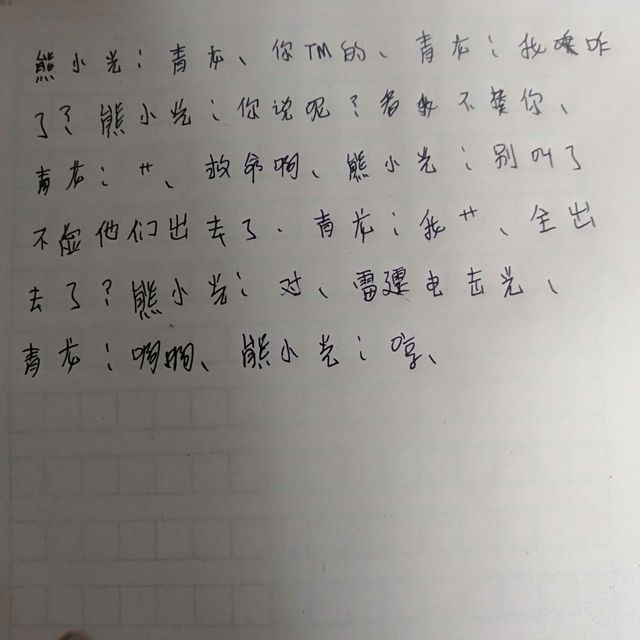 熊小光：青龙、你TM的、青龙：我咋
了？熊小光：你说呢？看我不揍你、
青龙：艹、救命啊、熊小光：别叫了
不虚他们出去了．青龙：我艹、全出
去了？熊小光：对、雷霆电击光、
青龙：啊啊、熊小光：哼、